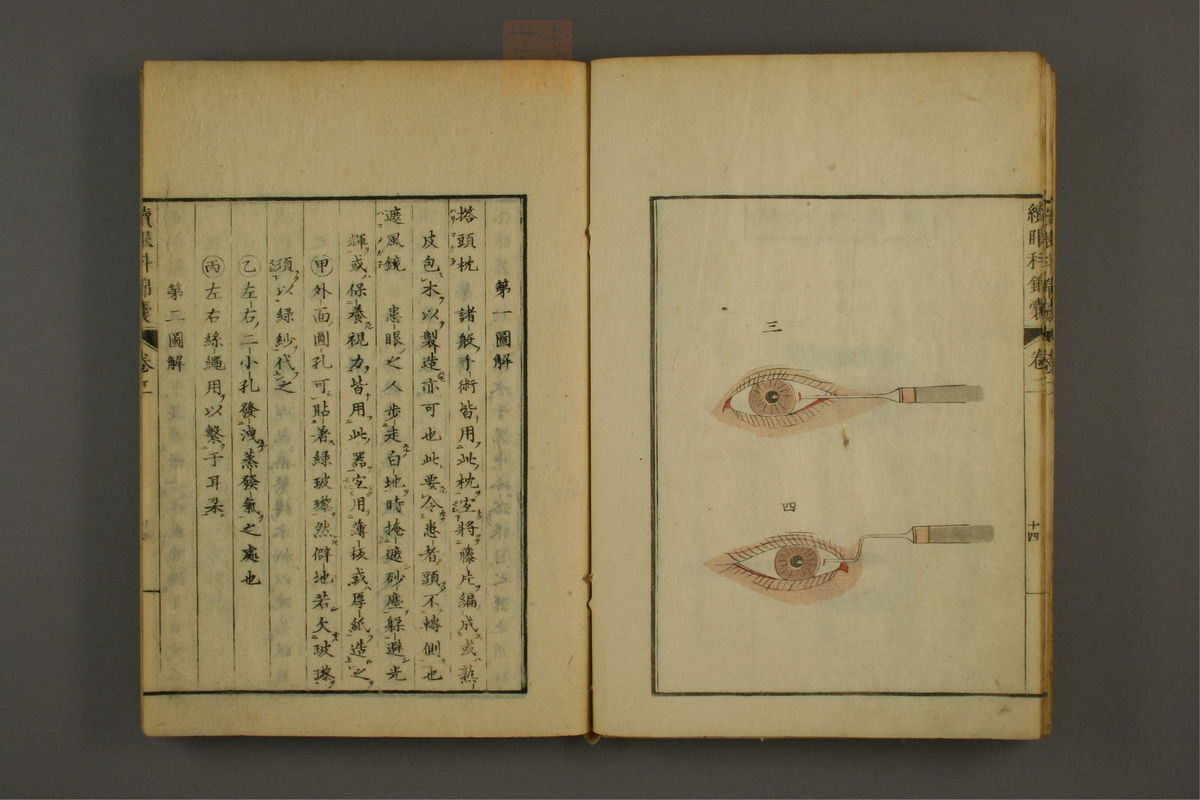 續眼科錦囊
卷二
十四
三
四
第一圖解
搭頭枕 諸般手術皆用此枕宜將藤片編成或熟
皮包木以製造亦可也此要令患者頭不轉側也
遮風鏡 患眼之人步走白地時掩遮砂塵躲避光
輝或保養視力皆用此器宜用薄板或厚紙造之
甲外面圓孔可貼著綠玻瓈然僻地若欠玻瓈
須以綠紗代之
乙左右二小孔發洩蒸發氣之處也
丙左右絲繩用以繫于耳朶
第二圖解
續眼科錦囊
卷二